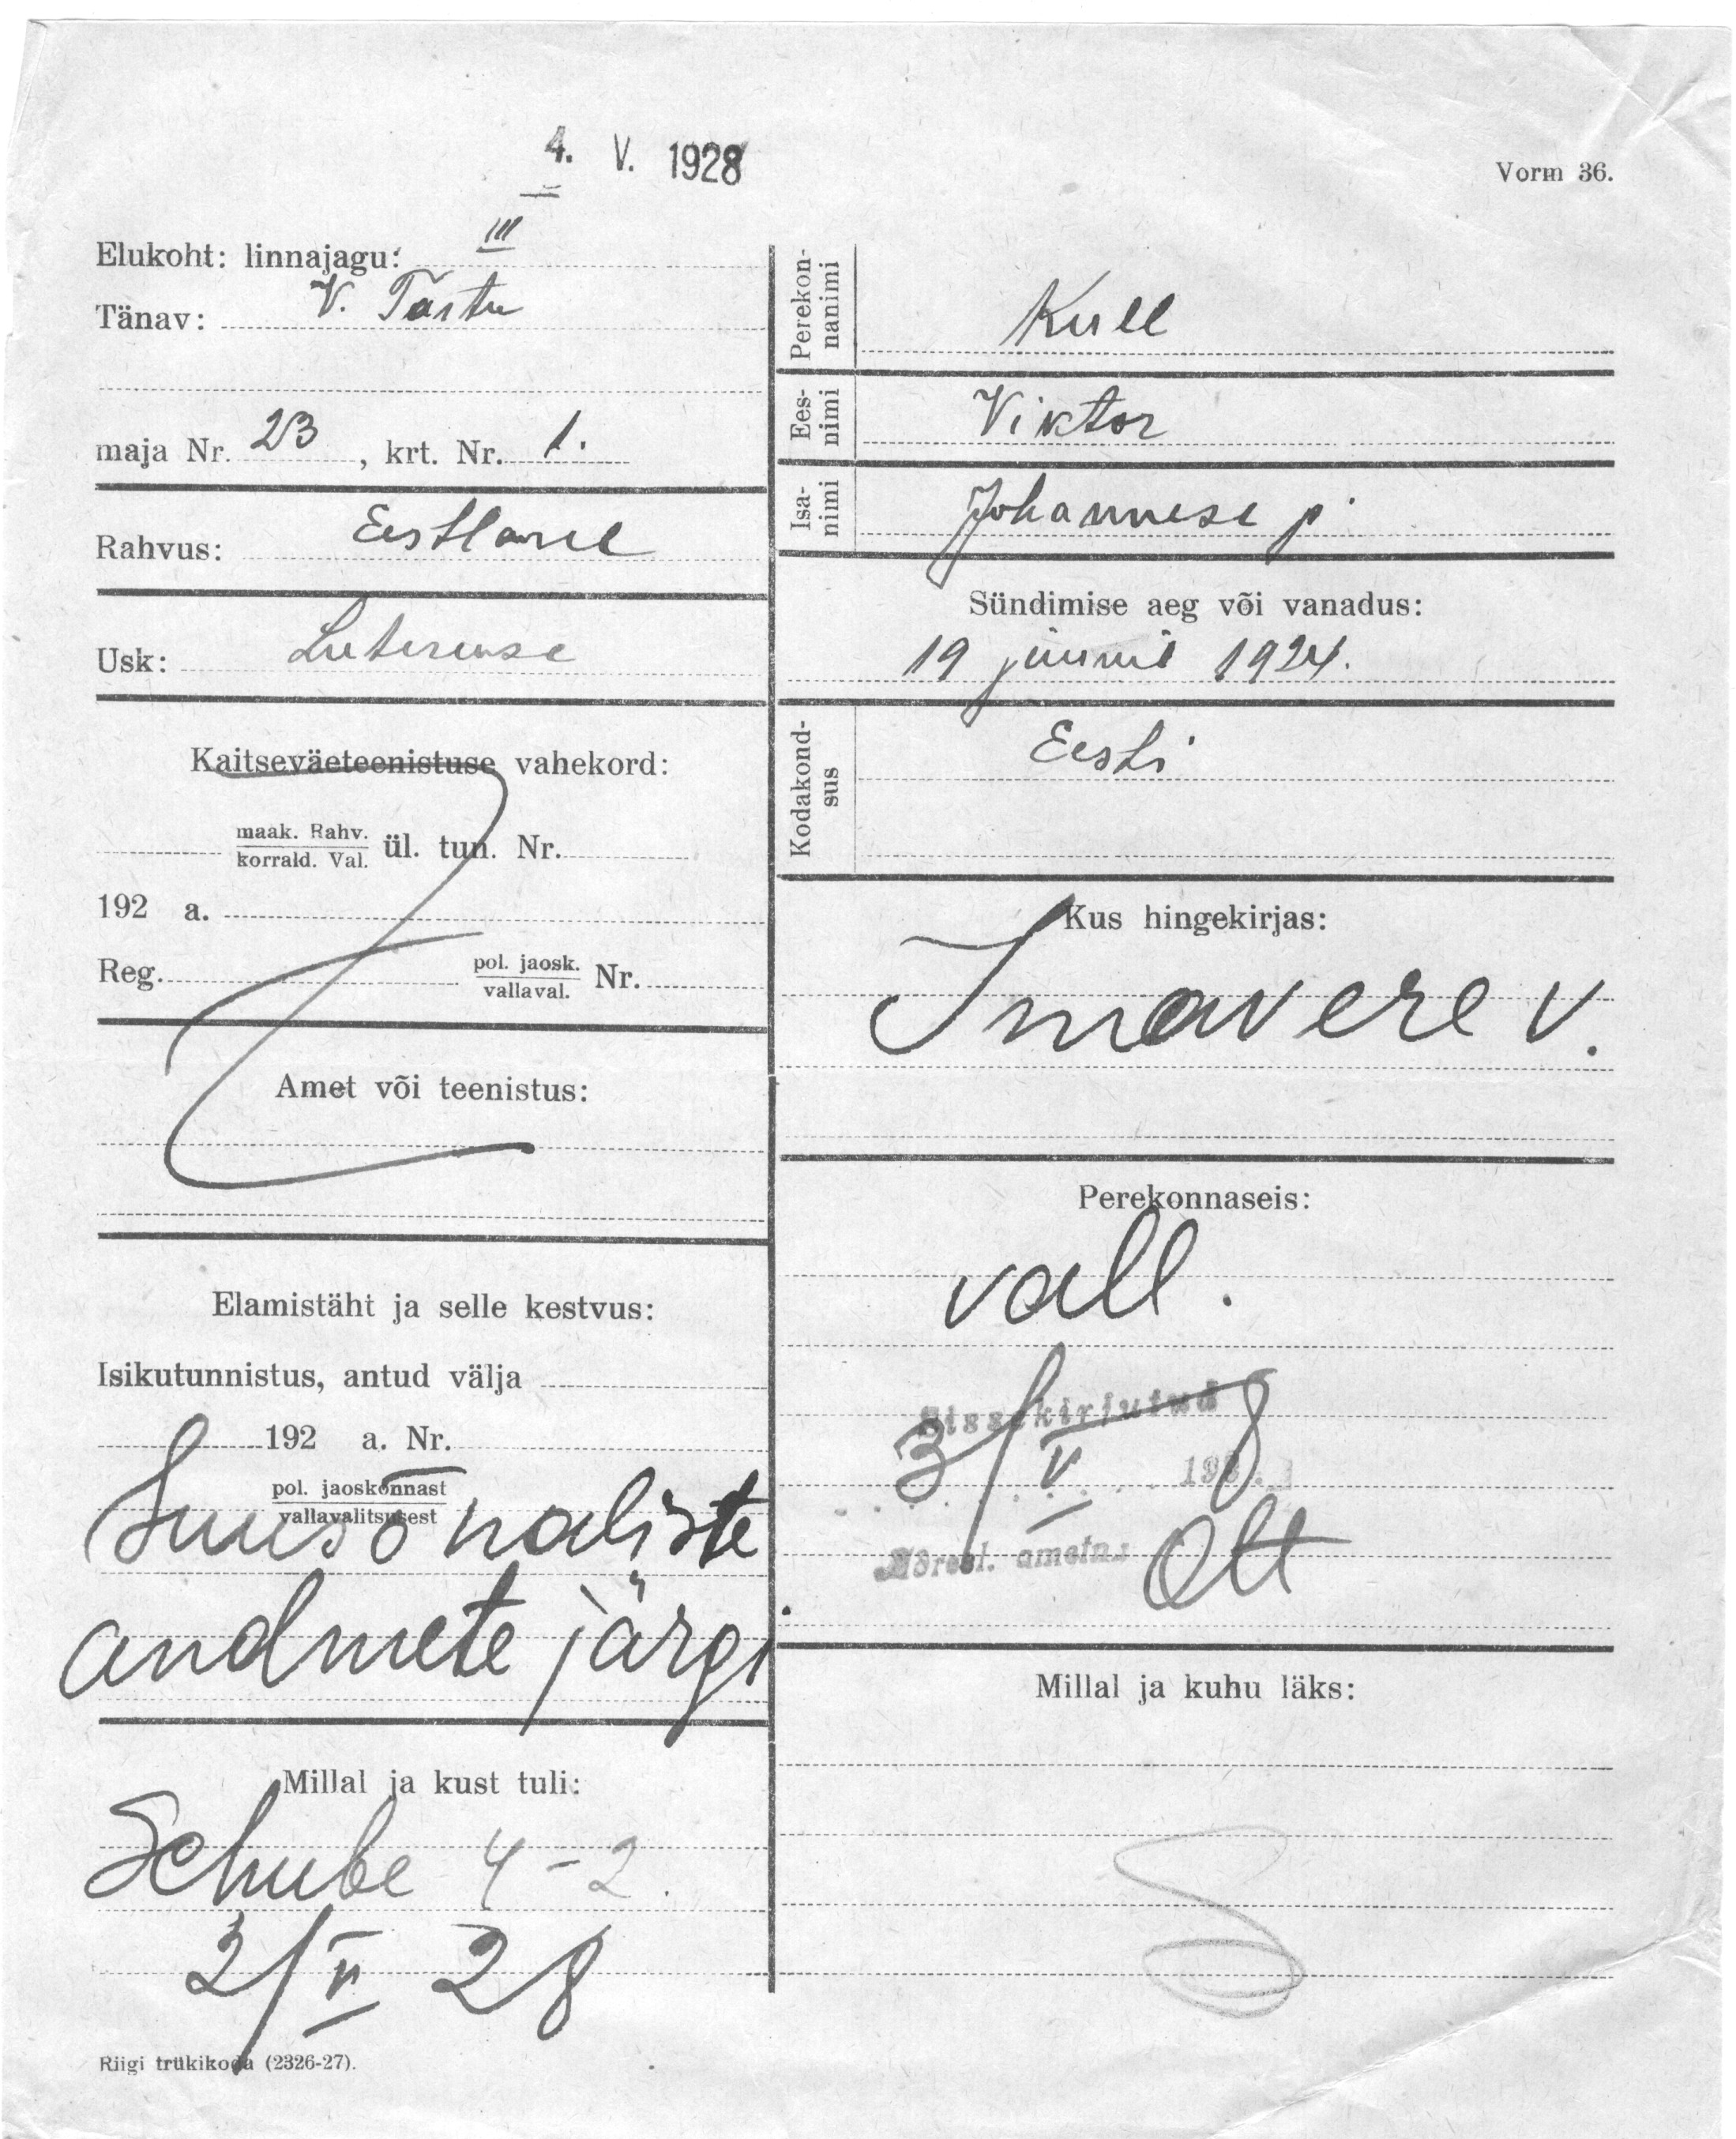 4. V. 1928
Vorm 36.
Elukoht: linnajagu: III
Tänav: V. Tartu
maja Nr. 23, krt. Nr. 1.
Rahvus: Eestlane
Usk: Luteruse
Kaitseväeteenistuse vahekord:
maak. Rahv.
korrald. Val. ül. tun. Nr.
192 a.
Reg. pol. jaosk.
vallaval. Nr.
Amet või teenistus:
Elamistäht ja selle kestvus:
Isikutunnistus, antud välja
192 a. Nr.
pol. jaoskonnast
vallavalitsusest
Suusõnaliste
andmete järgi.
Millal ja kust tuli:
Schube 4-2.
2/V 28
Riigi trükikoda (2326-27).
Perekon-
nanimi
Kull
Ees-
nimi
Viktor
Isa-
nimi
Johannese p.
Sündimise aeg või vanadus:
19 juunil 1924.
Kodakond-
sus
Eesti
Kus hingekirjas:
Imavere v.
Perekonnaseis:
vall.
Sissekirjutud
3/V 1928
ametn. Ott
Millal ja kuhu läks: